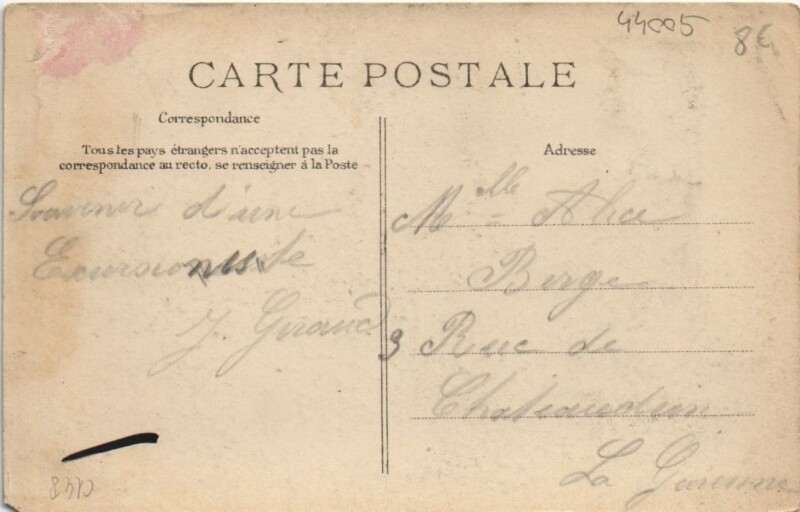 44005
8€
CARTE POSTALE
Correspondance
Tous les pays étrangers n'acceptent pas la
correspondance au recto, se renseigner à la Poste
Souvenir d'une
Excursionniste
J. Giraud
Adresse
Mlle Alice
Berge
3 Rue de
Chateaudun
La Garenne